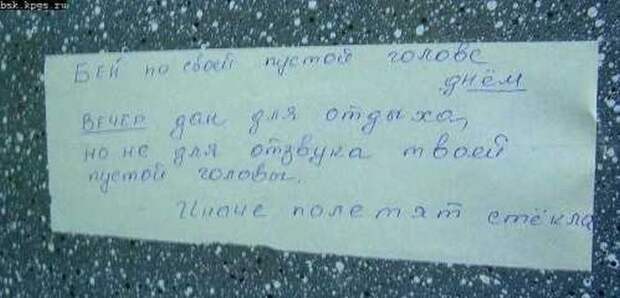 bsk.kpgs.ru
Бей по своей пустой голове
днём
Вечер дан для отдыха,
но не для отзвука твоей
пустой головы.
Иначе полетят стёкла